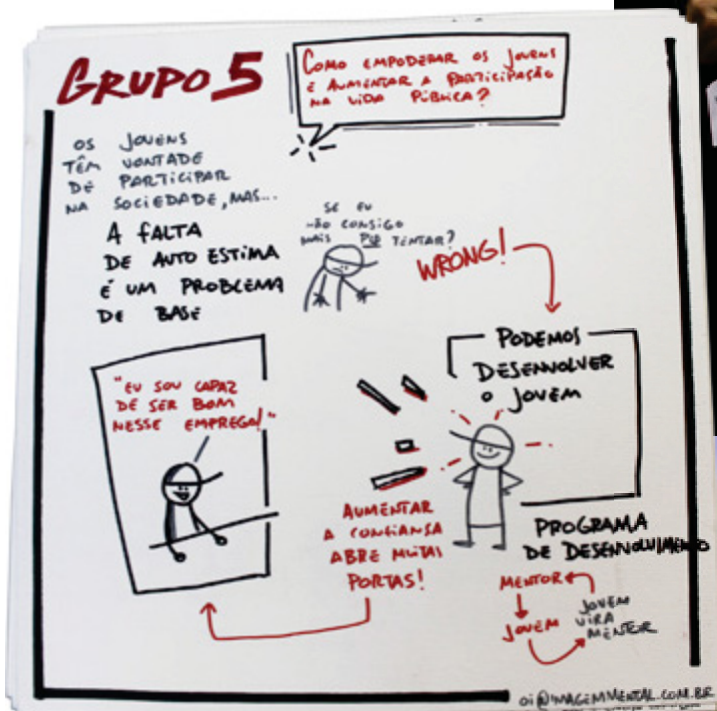 GRUPO 5
COMO EMPODERAR OS JOVENS
E AUMENTAR A PARTICIPAÇÃO
NA VIDA PÚBLICA?
OS JOVENS
TÊM VONTADE
DE PARTICIPAR
NA SOCIEDADE, MAS...
A FALTA
DE AUTO ESTIMA
É UM PROBLEMA
DE BASE
SE EU
NÃO CONSIGO
MAIS TENTAR?
WRONG!
PODEMOS
DESENVOLVER
O JOVEM
"EU SOU CAPAZ
DE SER BOM
NESSE EMPREGO!"
AUMENTAR
A CONFIANSA
ABRE MUITAS
PORTAS!
PROGRAMA
DE DESENVOLVIMENTO
MENTOR
JOVEM
JOVEM
VIRA
MENTOR
oi@IMAGEMMENTAL.COM.BR